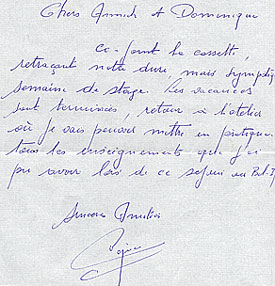 Chers Annick et Dominique
Ci-joint la cassette,
retraçant notre dure, mais sympathique
semaine de stage. Les vacances
sont terminées, retour à l'atelier
où je vais pouvoir mettre en pratique
tous les enseignements que j'ai
pu avoir lors de ce séjour en
Sincères Amitiés